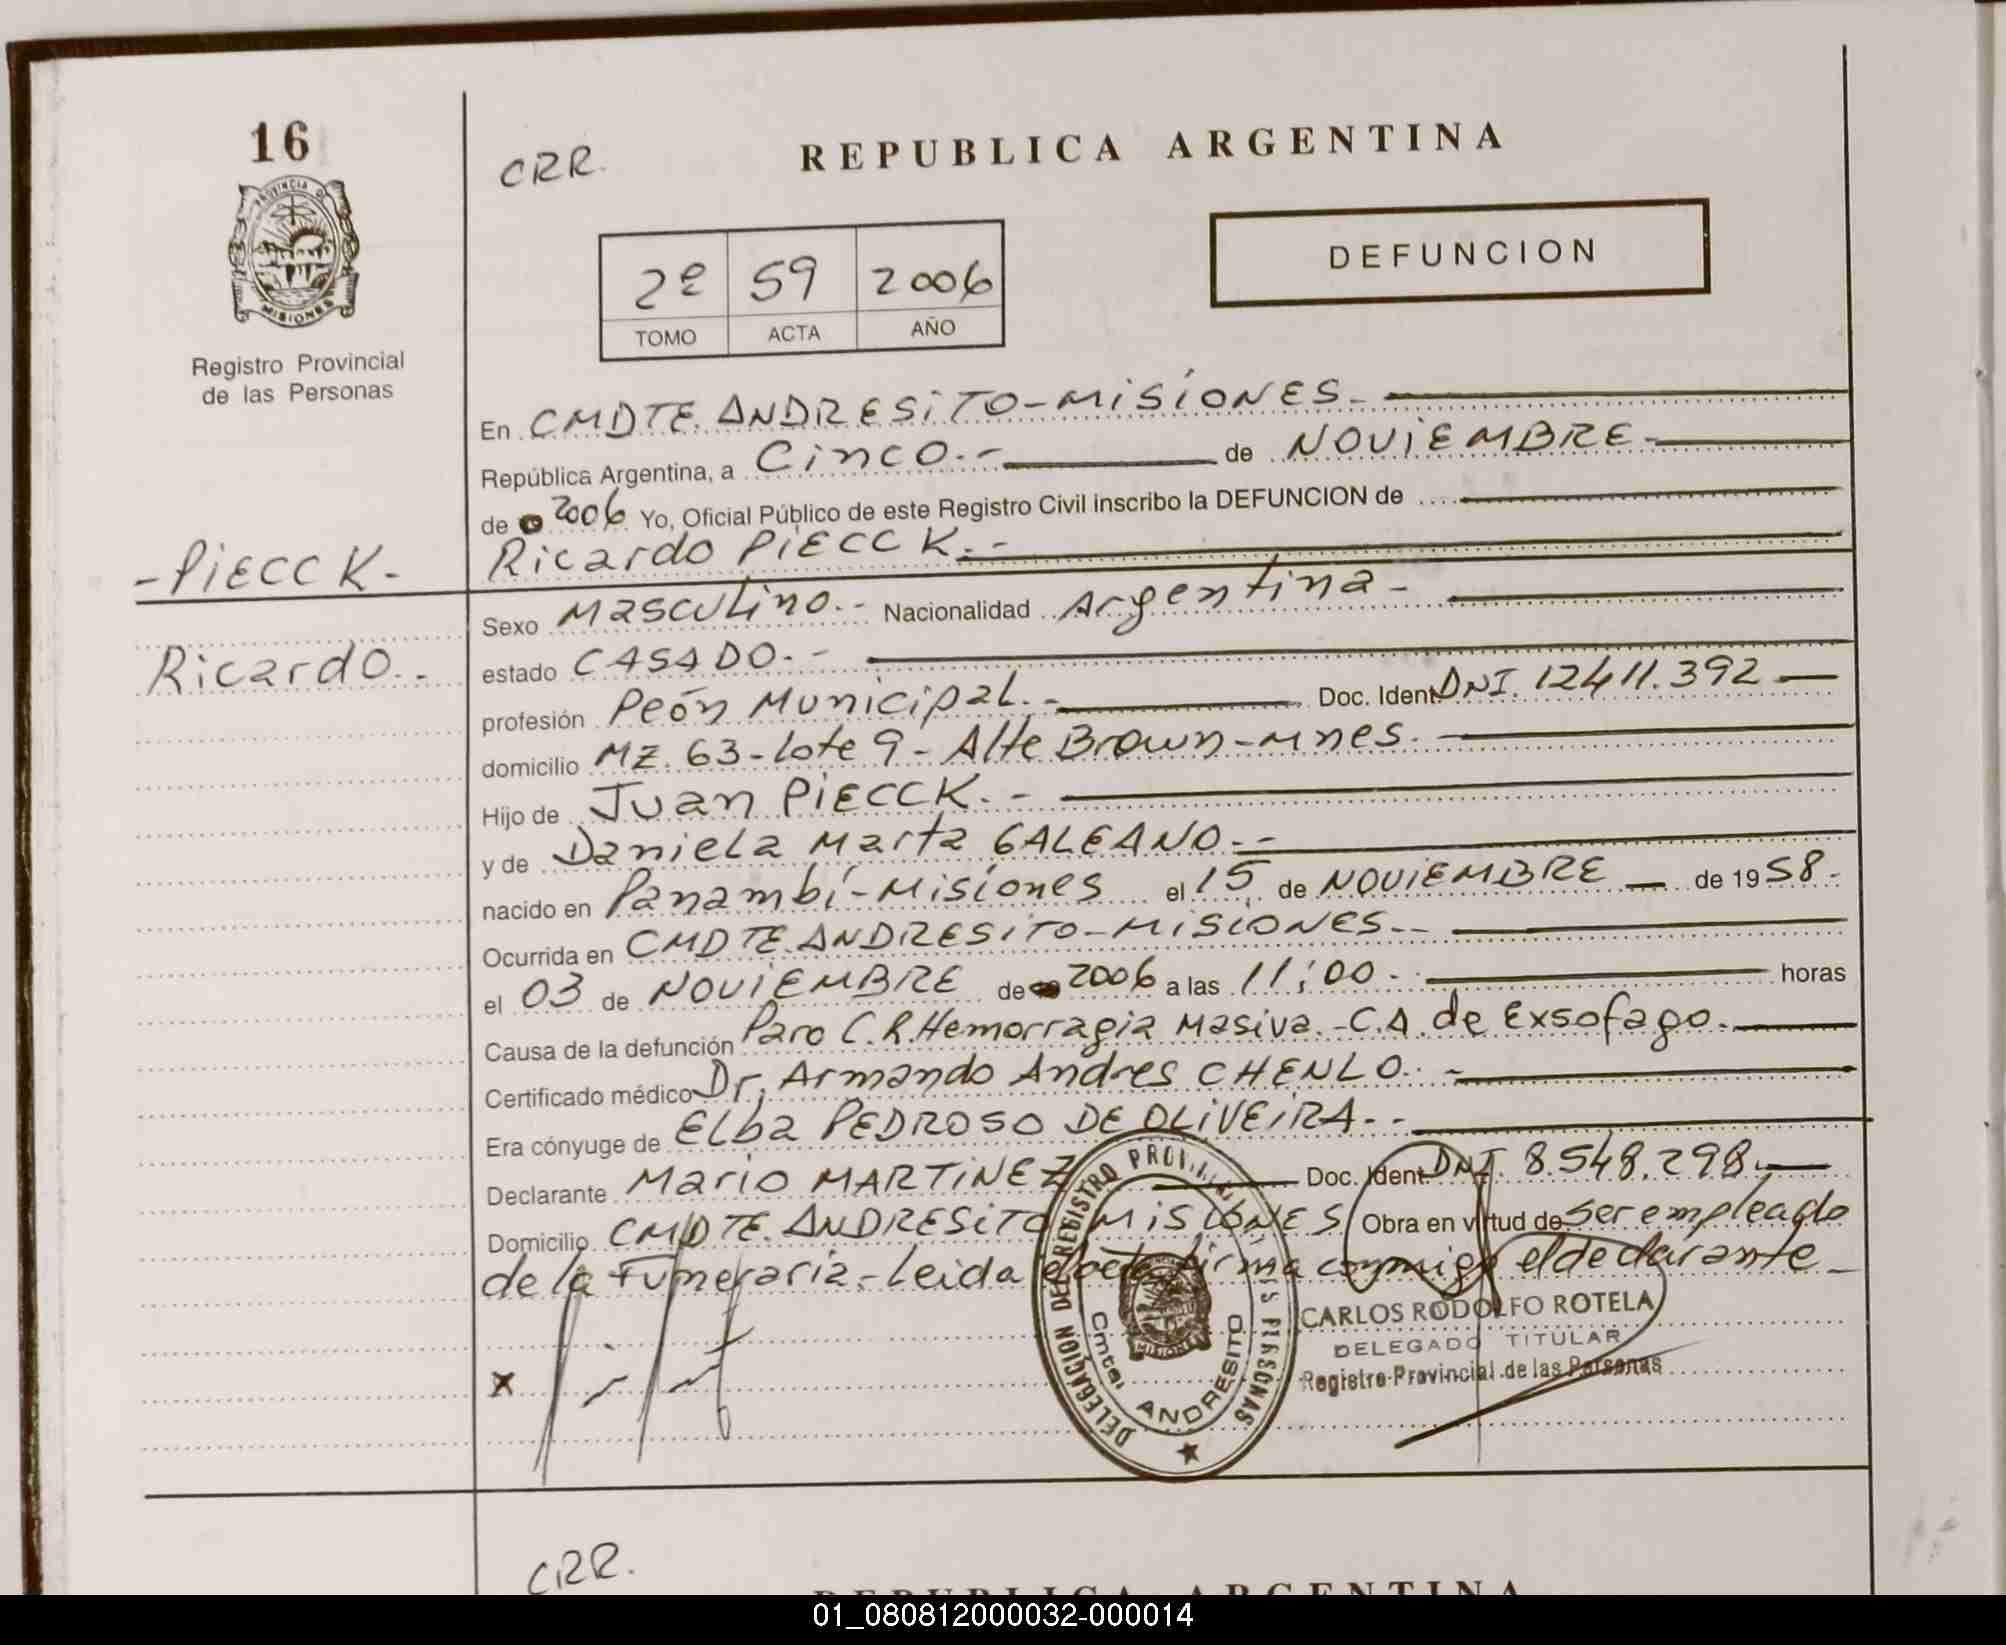 16
CRR.
REPUBLICA ARGENTINA
PROVINCIA DE
MISIONES
Registro Provincial
de las Personas
2º 59 2006
TOMO ACTA AÑO
DEFUNCION
En CMDTE. ANDRESITO-MISIONES.-
República Argentina, a Cinco.- de NOVIEMBRE-
de 2006 Yo, Oficial Público de este Registro Civil inscribo la DEFUNCION de
-PIECCK- Ricardo PIECCK.-
Sexo Masculino.- Nacionalidad Argentina-
Ricardo.- estado CASADO.-
profesión Peón Municipal.- Doc. Ident. DNI. 12411.392
domicilio Mz. 63-Lote 9-Alte Brown-mnes.
Hijo de Juan PIECCK.-
y de Daniela Marta GALEANO.-
nacido en Panambí-Misiones el 15 de NOVIEMBRE de 1958.
Ocurrida en CMDTE. ANDRESITO-MISIONES.-
el 03 de NOVIEMBRE de 2006 a las 11:00.- horas
Causa de la defunción Paro C.R. Hemorragia Masiva.-C.A. de Exsofago.
Certificado médico Dr. Armando Andres CHENLO.-
Era cónyuge de Elba PEDROSO DE OLIVEIRA.-
Declarante Mario MARTINEZ Doc. Ident. DNI. 8.548.298.
Domicilio CMDTE. ANDRESITO MISIONES Obra en virtud de ser empleado
de la Funeraria.-Leida el acta firma conmigo el declarante-
X
DELEGACION DEL REGISTRO PROVINCIAL DE LAS PERSONAS
Cmte. ANDRESITO
MISIONES
CARLOS RODOLFO ROTELA
DELEGADO TITULAR
Registro Provincial de las Personas
CRR.
REPUBLICA ARGENTINA
01_080812000032-000014